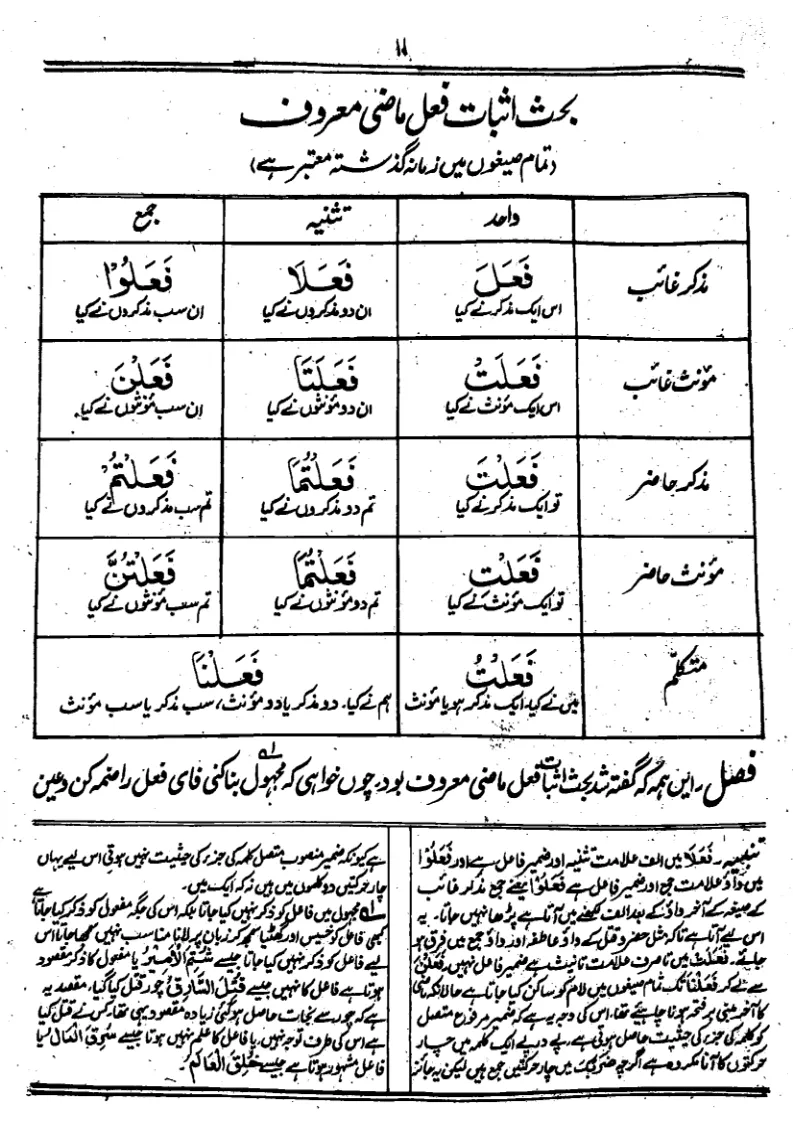 ۱۱
بحث اثبات فعل ماضی معروف
(تمام صیغوں میں زمانہ گذشتہ معتبر ہے)
واحد تثنیہ جمع
مذکر غائب فَعَلَ فَعَلَا فَعَلُوْا
اس ایک مذکر نے کیا ان دو مذکروں نے کیا ان سب مذکروں نے کیا
مؤنث غائب فَعَلَتْ فَعَلَتَا فَعَلْنَ
اس ایک مؤنث نے کیا ان دو مؤنثوں نے کیا ان سب مؤنثوں نے کیا۔
مذکر حاضر فَعَلْتَ فَعَلْتُمَا فَعَلْتُمْ
تو ایک مذکر نے کیا تم دو مذکروں نے کیا تم سب مذکروں نے کیا
مؤنث حاضر فَعَلْتِ فَعَلْتُمَا فَعَلْتُنَّ
تو ایک مؤنث نے کیا تم دو مؤنثوں نے کیا تم سب مؤنثوں نے کیا
متکلم فَعَلْتُ فَعَلْنَا
میں نے کیا۔ ایک مذکر ہو یا مؤنث ہم نے کیا۔ دو مذکر یا دو مؤنث، سب مذکر یا سب مؤنث
فصل، این ہمہ کہ گفتہ شد بحث اثبات فعل ماضی معروف بود۔ چوں خواہی کہ مجہول بنا کنی فای فعل را ضمہ کن و عین
تنبیہ۔ فَعَلَا میں الف علامت تثنیہ اور ضمیر فاعل ہے اور فَعَلُوْا
میں واؤ علامت جمع اور ضمیر فاعل ہے فَعَلُوْا یعنے جمع مذکر غائب
کے صیغہ کے آخر واؤ کے بعد الف لکھنے میں آتا ہے پڑھا نہیں جاتا۔ یہ
اس لیے آتا ہے تاکہ مثل حضر و قتل کے واؤ عاطفہ اور واؤ جمع میں فرق ہو
جائے۔ فَعَلَتْ میں تا صرف علامت تانیث ہے ضمیر فاعل نہیں، فَعَلْنَ
سے لے کر فَعَلْنَا تک تمام صیغوں میں لام کو ساکن کیا جاتا ہے حالانکہ ماضی
کا آخر مبنی بر فتحہ ہونا چاہیئے تھا، اس کی وجہ یہ ہے کہ ضمیر مرفوع متصل
کو کلمہ کی جزء کی حیثیت حاصل ہوتی ہے۔ پے درپے ایک کلمہ میں چار
حرکتوں کا آنا مکروہ ہے اگرچہ ضَرَبَكَ میں چار حرکتیں جمع ہیں لیکن یہ جائز
ہے کیونکہ ضمیر منصوب متصل کلمہ کی جزء کی حیثیت نہیں ہوتی اس لیے یہاں
چار حرکتیں دو کلموں میں ہیں نہ کہ ایک میں۔
لہ مجہول میں فاعل کو ذکر نہیں کیا جاتا بلکہ اس کی جگہ مفعول کو ذکر کیا جاتا ہے
کبھی فاعل کو خسیس اور گھٹیا سمجھ کر زبان پر لانا مناسب نہیں سمجھا جاتا اس
لیے فاعل کو ذکر نہیں کیا جاتا جیسے شُتِمَ الْاَمِیْرُ یا مفعول کا ذکر مقصود
ہوتا ہے فاعل کا نہیں جیسے قُتِلَ السَّارِقُ چور قتل کیا گیا، مقصد یہ
ہے کہ چور سے نجات حاصل ہو گئی زیادہ مقصود یہی تھا، کس نے قتل کیا
ہے اس کی طرف توجہ نہیں، یا فاعل کا علم نہیں ہوتا جیسے سُرِقَ الْمَالُ یا
فاعل مشہور ہوتا ہے جیسے خُلِقَ الْعَالَمُ۔